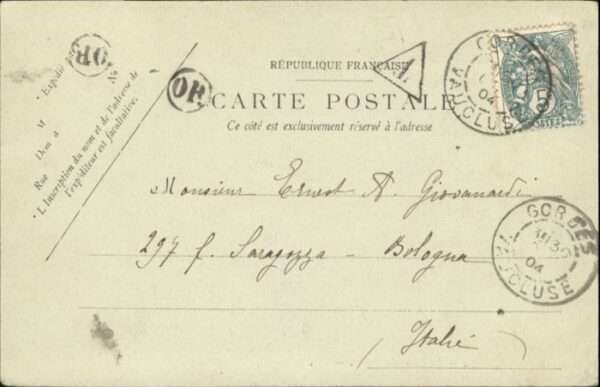 RÉPUBLIQUE FRANÇAISE
CARTE POSTALE
Ce côté est exclusivement réservé à l'adresse
OR
OR
Expédi
M
Dem à
Rue
L'Inscription du nom et de l'adresse de
l'expéditeur est facultative.
GORDES
04
VAUCLUSE
5
Monsieur Ernest A. Giovanardi
297 f. Saragozza - Bologna
Italie
GORDES
30
04
VAUCLUSE